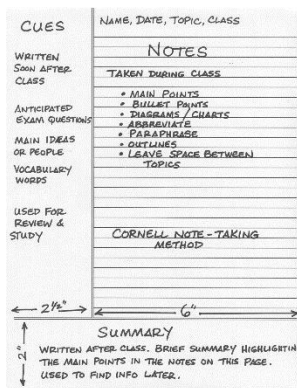 NAME, DATE, TOPIC, CLASS
CUES
WRITTEN
SOON AFTER
CLASS
ANTICIPATED
EXAM QUESTIONS
MAIN IDEAS
OR PEOPLE
VOCABULARY
WORDS
USED FOR
REVIEW &
STUDY
NOTES
TAKEN DURING CLASS
• MAIN POINTS
• BULLET POINTS
• DIAGRAMS / CHARTS
• ABBREVIATE
• PARAPHRASE
• OUTLINES
• LEAVE SPACE BETWEEN
TOPICS
CORNELL NOTE-TAKING
METHOD
2 1/2"
6"
2"
SUMMARY
WRITTEN AFTER CLASS. BRIEF SUMMARY HIGHLIGHTIN
THE MAIN POINTS IN THE NOTES ON THIS PAGE.
USED TO FIND INFO LATER.